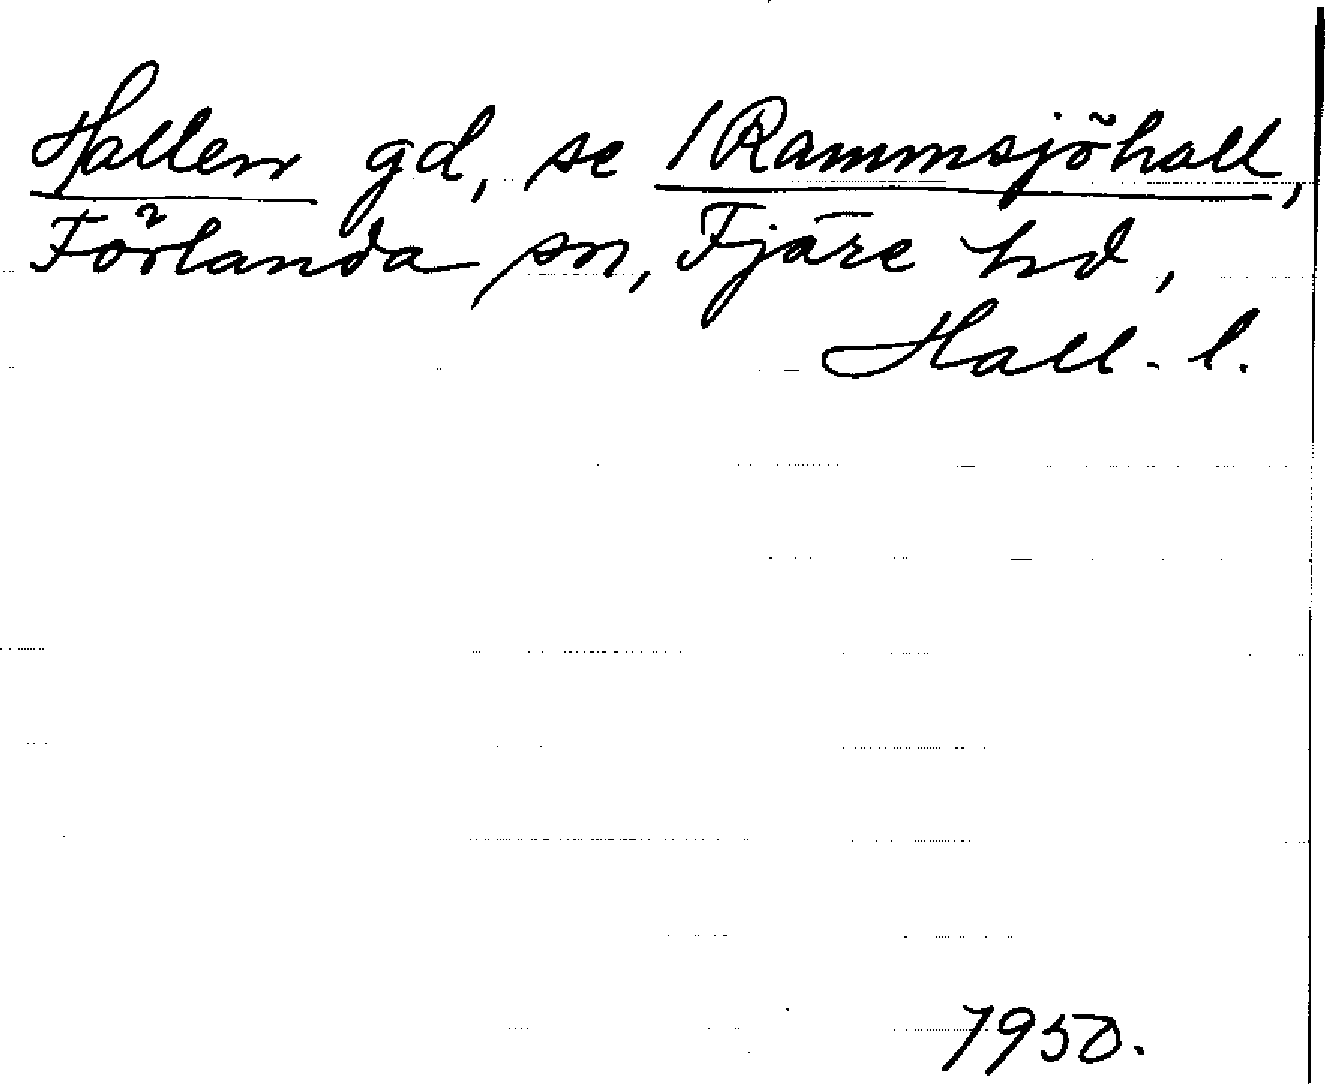 Hallen gd, se /Rammsjöhall,
Förlanda sn, Fjäre hd,
Hall. l.
1950.